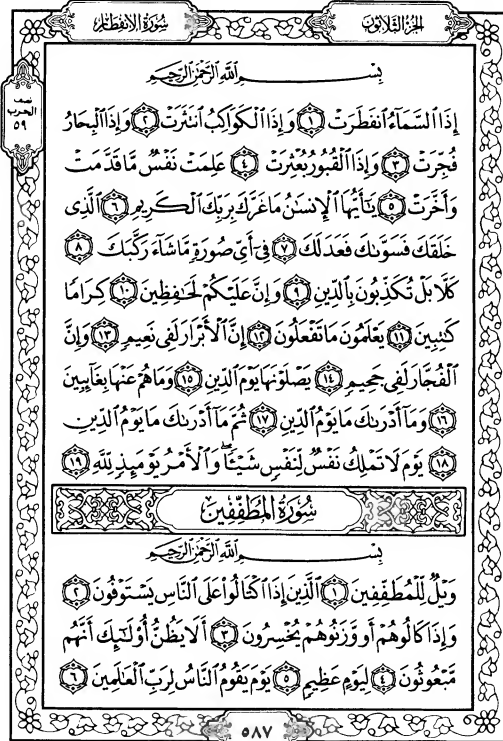 الجزء الثلاثون
سورة الانفطار
نصف
الحزب
٥٩
بِسْمِ اللَّهِ الرَّحْمَٰنِ الرَّحِيمِ
إِذَا السَّمَاءُ انفَطَرَتْ ١ وَإِذَا الْكَوَاكِبُ انتَثَرَتْ ٢ وَإِذَا الْبِحَارُ
فُجِّرَتْ ٣ وَإِذَا الْقُبُورُ بُعْثِرَتْ ٤ عَلِمَتْ نَفْسٌ مَّا قَدَّمَتْ
وَأَخَّرَتْ ٥ يَٰأَيُّهَا الْإِنسَٰنُ مَا غَرَّكَ بِرَبِّكَ الْكَرِيمِ ٦ الَّذِى
خَلَقَكَ فَسَوَّىٰكَ فَعَدَلَكَ ٧ فِىٓ أَىِّ صُورَةٍ مَّا شَآءَ رَكَّبَكَ ٨
كَلَّا بَلْ تُكَذِّبُونَ بِالدِّينِ ٩ وَإِنَّ عَلَيْكُمْ لَحَٰفِظِينَ ١٠ كِرَامًا
كَٰتِبِينَ ١١ يَعْلَمُونَ مَا تَفْعَلُونَ ١٢ إِنَّ الْأَبْرَارَ لَفِى نَعِيمٍ ١٣ وَإِنَّ
الْفُجَّارَ لَفِى جَحِيمٍ ١٤ يَصْلَوْنَهَا يَوْمَ الدِّينِ ١٥ وَمَا هُمْ عَنْهَا بِغَآئِبِينَ
١٦ وَمَآ أَدْرَىٰكَ مَا يَوْمُ الدِّينِ ١٧ ثُمَّ مَآ أَدْرَىٰكَ مَا يَوْمُ الدِّينِ
١٨ يَوْمَ لَا تَمْلِكُ نَفْسٌ لِّنَفْسٍ شَيْـًٔا ۖ وَالْأَمْرُ يَوْمَئِذٍ لِّلَّهِ ١٩
سُورَةُ الْمُطَفِّفِينَ
بِسْمِ اللَّهِ الرَّحْمَٰنِ الرَّحِيمِ
وَيْلٌ لِّلْمُطَفِّفِينَ ١ الَّذِينَ إِذَا اكْتَالُوا۟ عَلَى النَّاسِ يَسْتَوْفُونَ ٢
وَإِذَا كَالُوهُمْ أَو وَّزَنُوهُمْ يُخْسِرُونَ ٣ أَلَا يَظُنُّ أُو۟لَٰٓئِكَ أَنَّهُم
مَّبْعُوثُونَ ٤ لِيَوْمٍ عَظِيمٍ ٥ يَوْمَ يَقُومُ النَّاسُ لِرَبِّ الْعَٰلَمِينَ ٦
٥٨٧